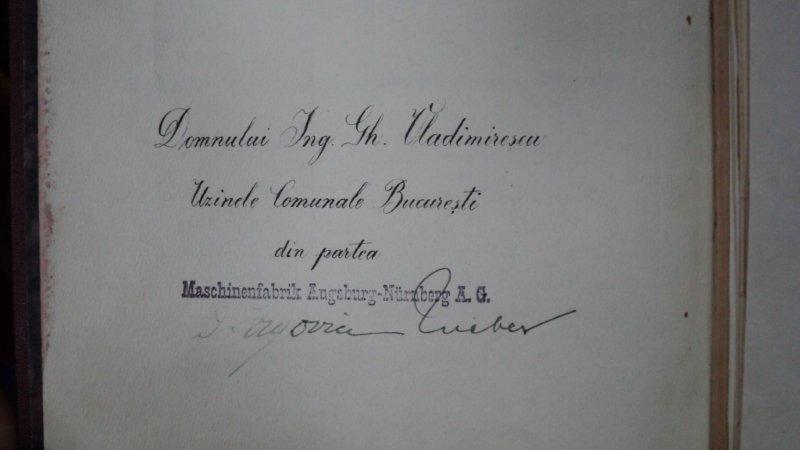 Domnului Ing. Gh. Vladimirescu
Uzinele Comunale București
din partea
Maschinenfabrik Augsburg-Nürnberg A. G.